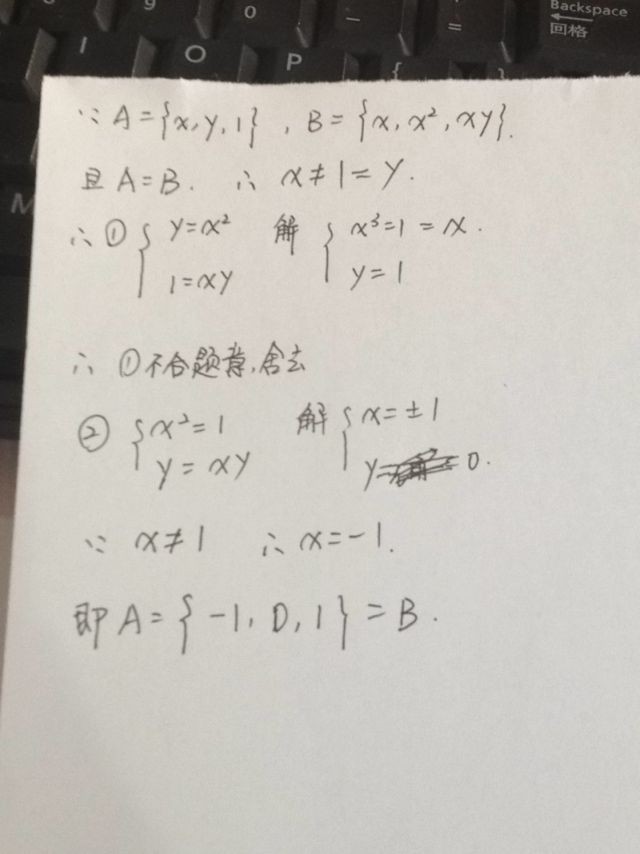 9 0 - =
Backspace
回格
I O P {
M
∵ A={x,y,1}, B={x,x²,xy}.
且 A=B. ∴ x≠1=y.
∴ ① { y=x² 解 { x³=1=x.
1=xy y=1
∴ ①不合题意,舍去
② { x²=1 解 { x=±1
y=xy y=0.
∵ x≠1 ∴ x=-1.
即 A={-1,0,1}=B.